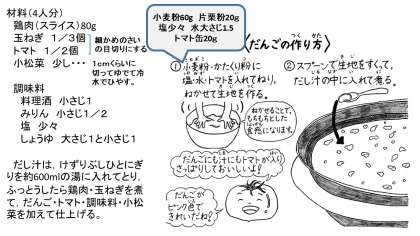 材料(4人分)
鶏肉(スライス)80g
玉ねぎ 1/3個
トマト 1/2個
細かめのさい
の目切りにする
小松菜 少し・・・
1cmくらいに
切ってゆでて冷
水でひやす。
調味料
料理酒 小さじ1
みりん 小さじ1/2
塩 少々
しょうゆ 大さじ1と小さじ1
だし汁は、けずりぶしひとにぎ
りを約600mlの湯に入れてとり、
ふっとうしたら鶏肉・玉ねぎを煮
て、だんご・トマト・調味料・小松
菜を加えて仕上げる。
小麦粉60g 片栗粉20g
塩少々 水大さじ1.5
トマト缶20g
〈だんごの作り方〉
①小麦粉・かたくり粉に
塩・水・トマトを入れてねり、
ねかせて生地を作る。
ねかせることで、
もちもちとした
食感になります。
②スプーンで生地をすくって、
だし汁の中に入れて煮る。
だんごにも汁にもトマトが入り
さっぱりしておいしいよ!
だんごが
ピンク色で
きれいだね!